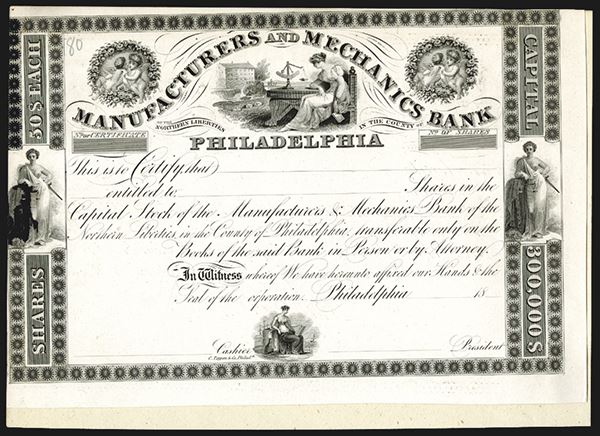 180
MANUFACTURERS AND MECHANICS BANK
OF THE NORTHERN LIBERTIES IN THE COUNTY OF
PHILADELPHIA
No. OF CERTIFICATE
No. OF SHARES
50$ EACH
SHARES
CAPITAL
300,000$
This is to Certify, that
entitled to Shares in the
Capital Stock of the Manufacturers & Mechanics Bank of the
Northern Liberties, in the County of Philadelphia, transferable only on the
Books of the said Bank in Person or by Attorney.
In Witness whereof We have hereunto affixed our Hands & the
Seal of the corporation. Philadelphia 18
Cashier President